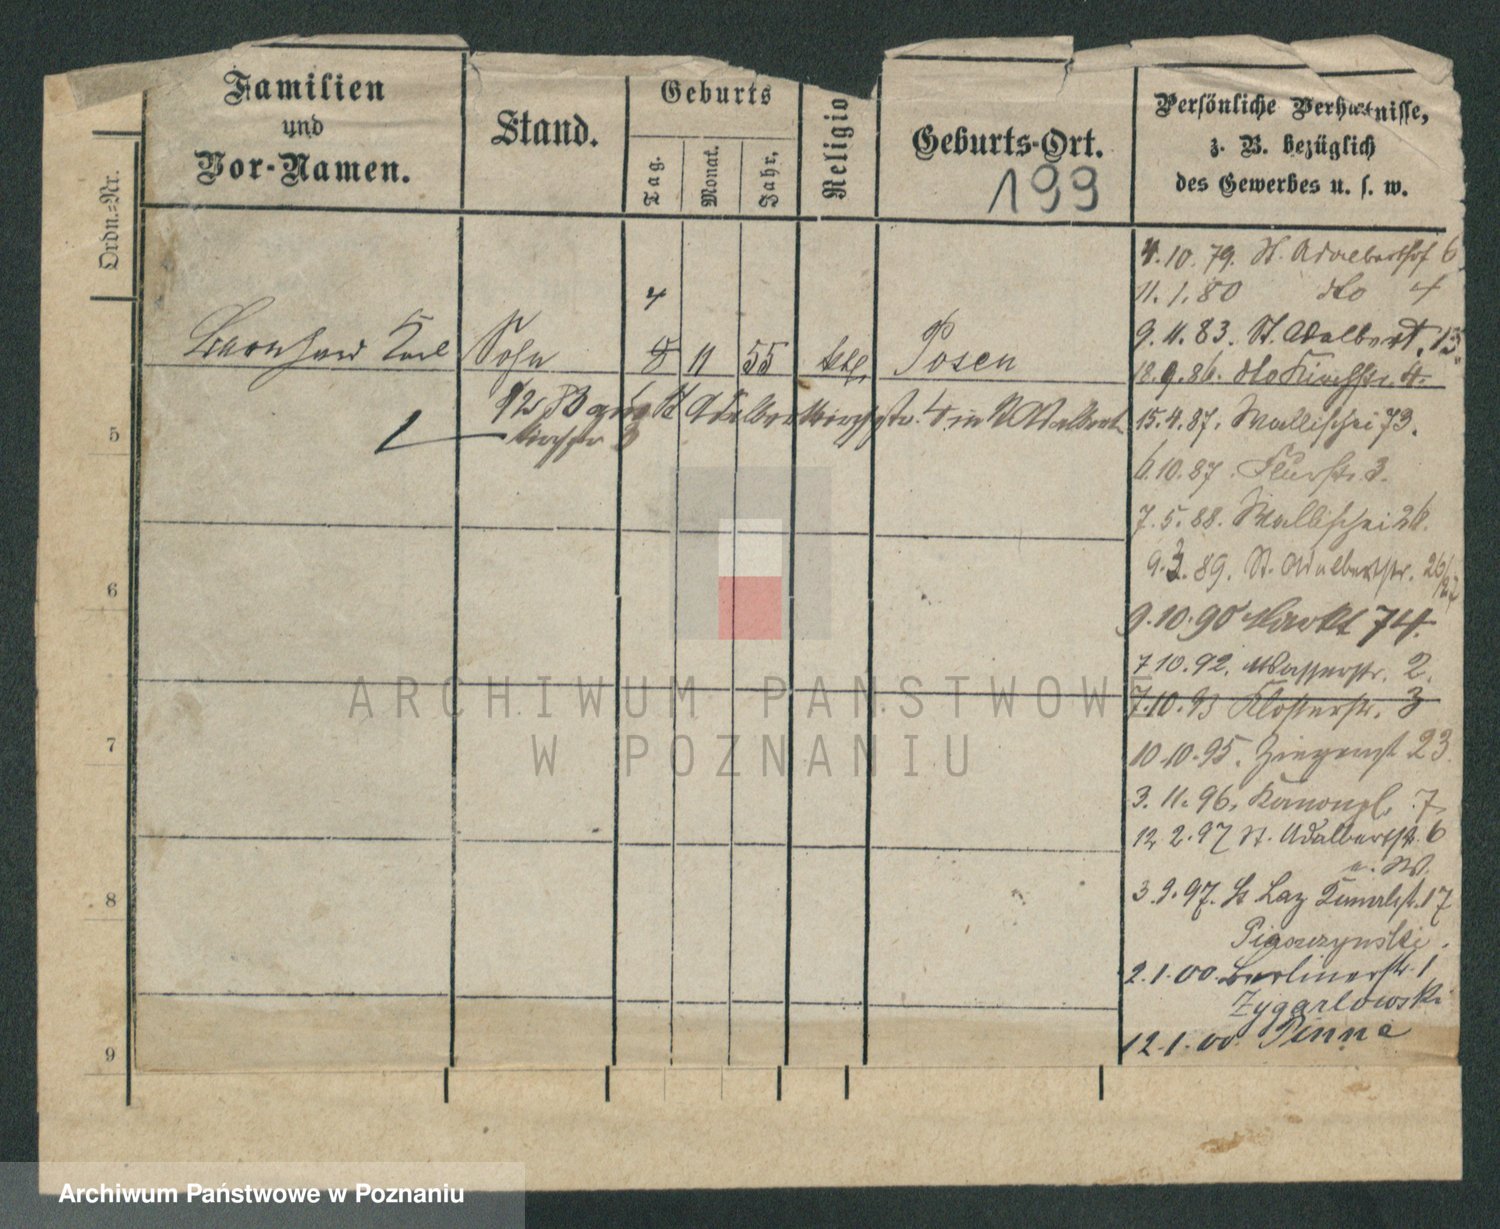 Familien
und
Vor-Namen.
Stand.
Geburts
Tag.
Monat.
Jahr.
Religio
Geburts-Ort.
199
Persönliche Verhältnisse,
z. B. bezüglich
des Gewerbes u. s. w.
Ordn.-Nr.
4
Karl Sohn 8 11 55 kth. Posen
5
6
7
8
9
4.10.79. St. Adalberthof 6
11.1.80 dto 4
9.11.83. St. Adalbert. 13
18.9.86. dto Kirchstr. 4.
15.4.87. Wallischei 73.
6.10.87. Flurstr. 3.
7.5.88. Wallischei 28.
9.3.89. St. Adalbertstr. 26/27
9.10.90 Markt 74.
7 10.92. Wasserstr. 2.
7.10.93 Klosterstr. 3
10 10.95. Ziegenst 23
3.11.96. Kanonpl. 7
12 2.97 St. Adalbertst. 6
3.9.97. St Laz Kanalst. 17
2.1.00. Berlinerstr. 1
Zygarlowski
12.1.00. Pinne
ARCHIWUM PAŃSTWOWE
W POZNANIU
Archiwum Państwowe w Poznaniu